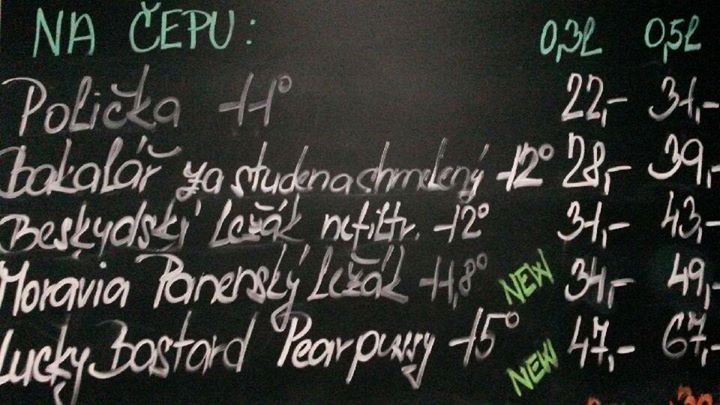 NA ČEPU: 0,3l 0,5l
Polička 11° 22,- 31,-
Bakalář za studena chmelený 12° 28,- 39,-
Beskydský Ležák nefiltr. 12° 31,- 43,-
Moravia Panenský Ležák 11,8° NEW 34,- 49,-
Lucky Bastard Pearpussy 15° NEW 47,- 67,-